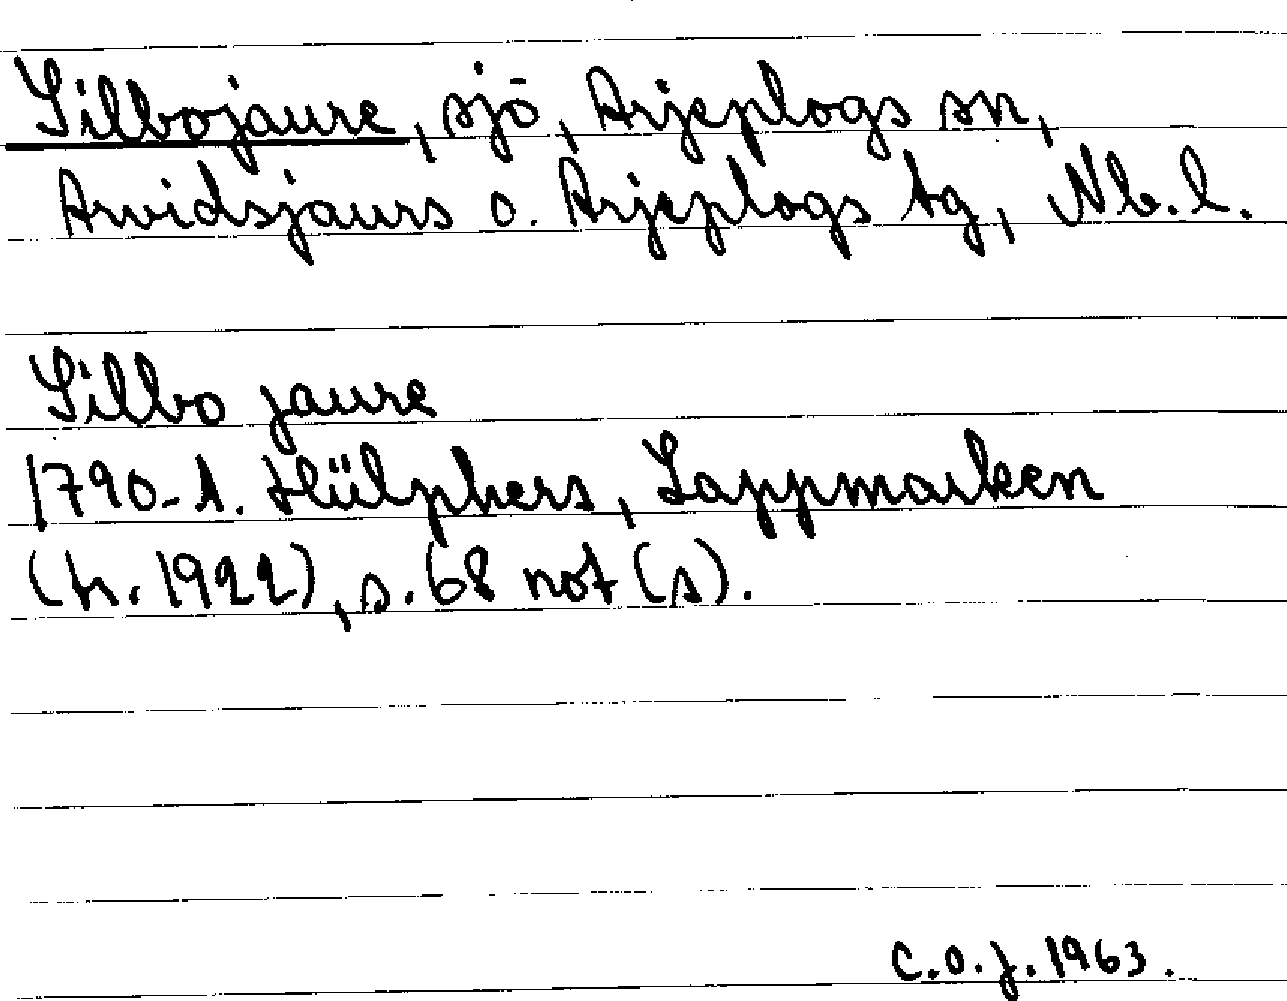 Silbojaure, sjö, Arjeplogs sn,
Arvidsjaurs o. Arjeplogs tg, Nb. l.
Silbo jaure
1790-t. Hülphers, Lappmarken
(tr. 1922), s. 68 not (s).
C.O.J. 1963.